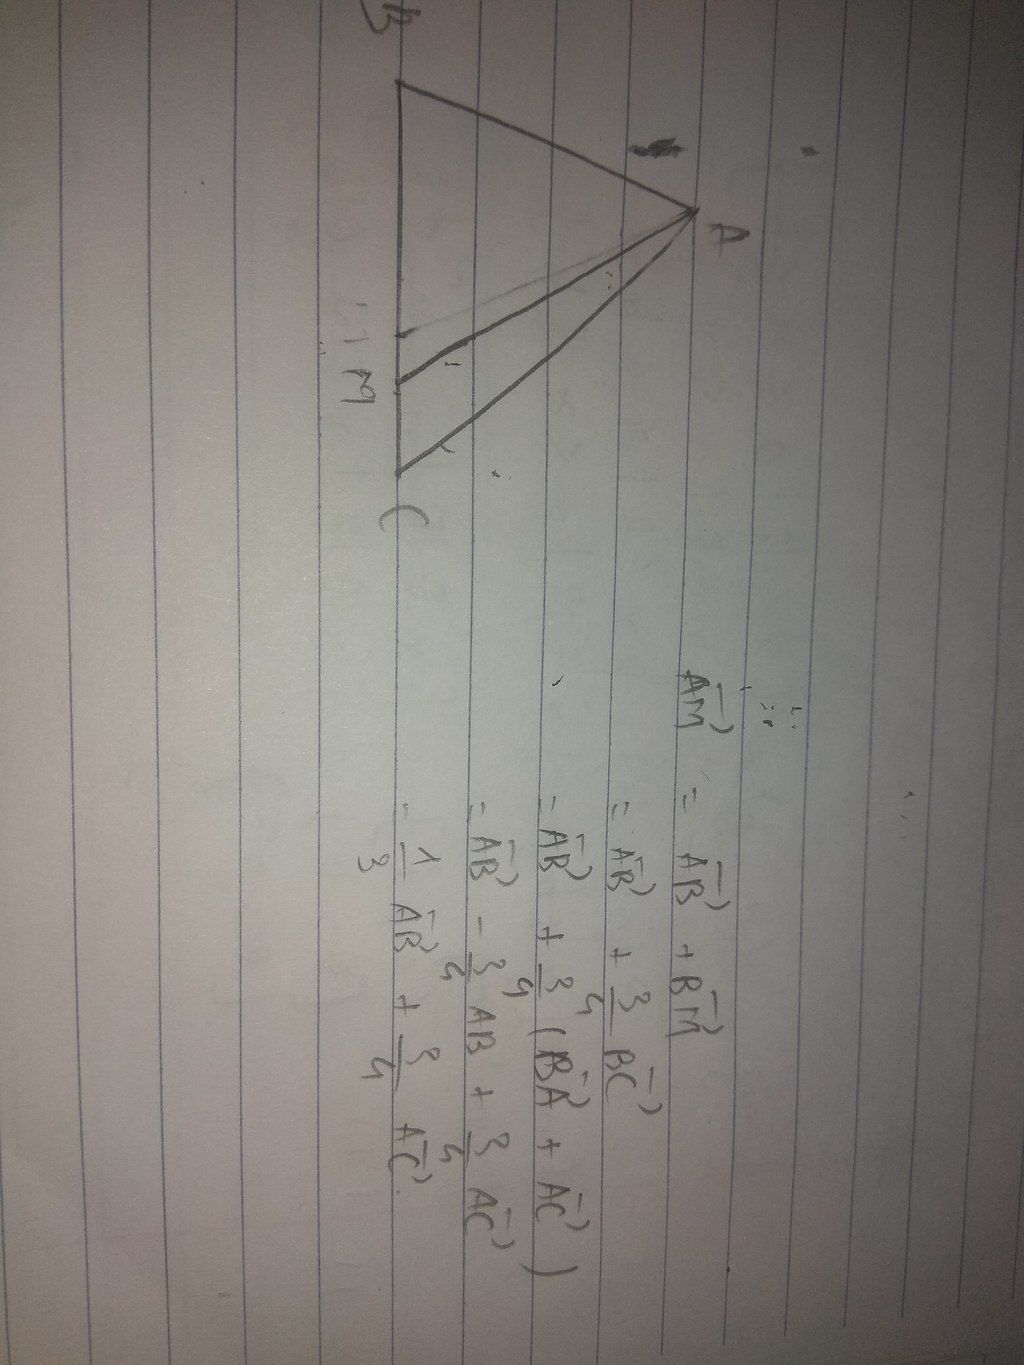 A
B
M
C
$\overrightarrow{AM} = \overrightarrow{AB} + \overrightarrow{BM}$
$= \overrightarrow{AB} + \frac{3}{4} \overrightarrow{BC}$
$= \overrightarrow{AB} + \frac{3}{4} (\overrightarrow{BA} + \overrightarrow{AC})$
$= \overrightarrow{AB} - \frac{3}{4} AB + \frac{3}{4} \overrightarrow{AC}$
$= \frac{1}{3} \overrightarrow{AB} + \frac{3}{4} \overrightarrow{AC}$.